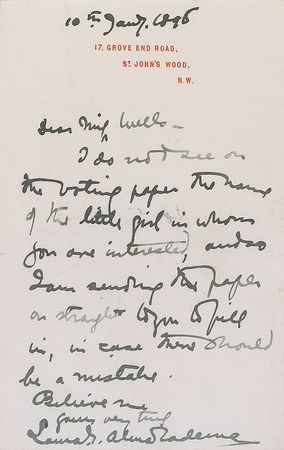 10th Jany. 1896
17, GROVE END ROAD,
ST JOHN'S WOOD,
N.W.
Dear Miss Wells –
I do not see on
the voting paper the name
of the little girl in whom
you are interested, and so
I am sending the paper
on straight to you to fill
in, in case there should
be a mistake.
Believe me
yours very truly
Laura T. Alma Tadema